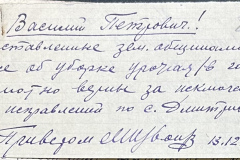 Василий Петрович!
ставленные зем. общинами
об уборке урожая (в г
верны за исключ
исправлений по с. Дмитри
Приветом 13.12